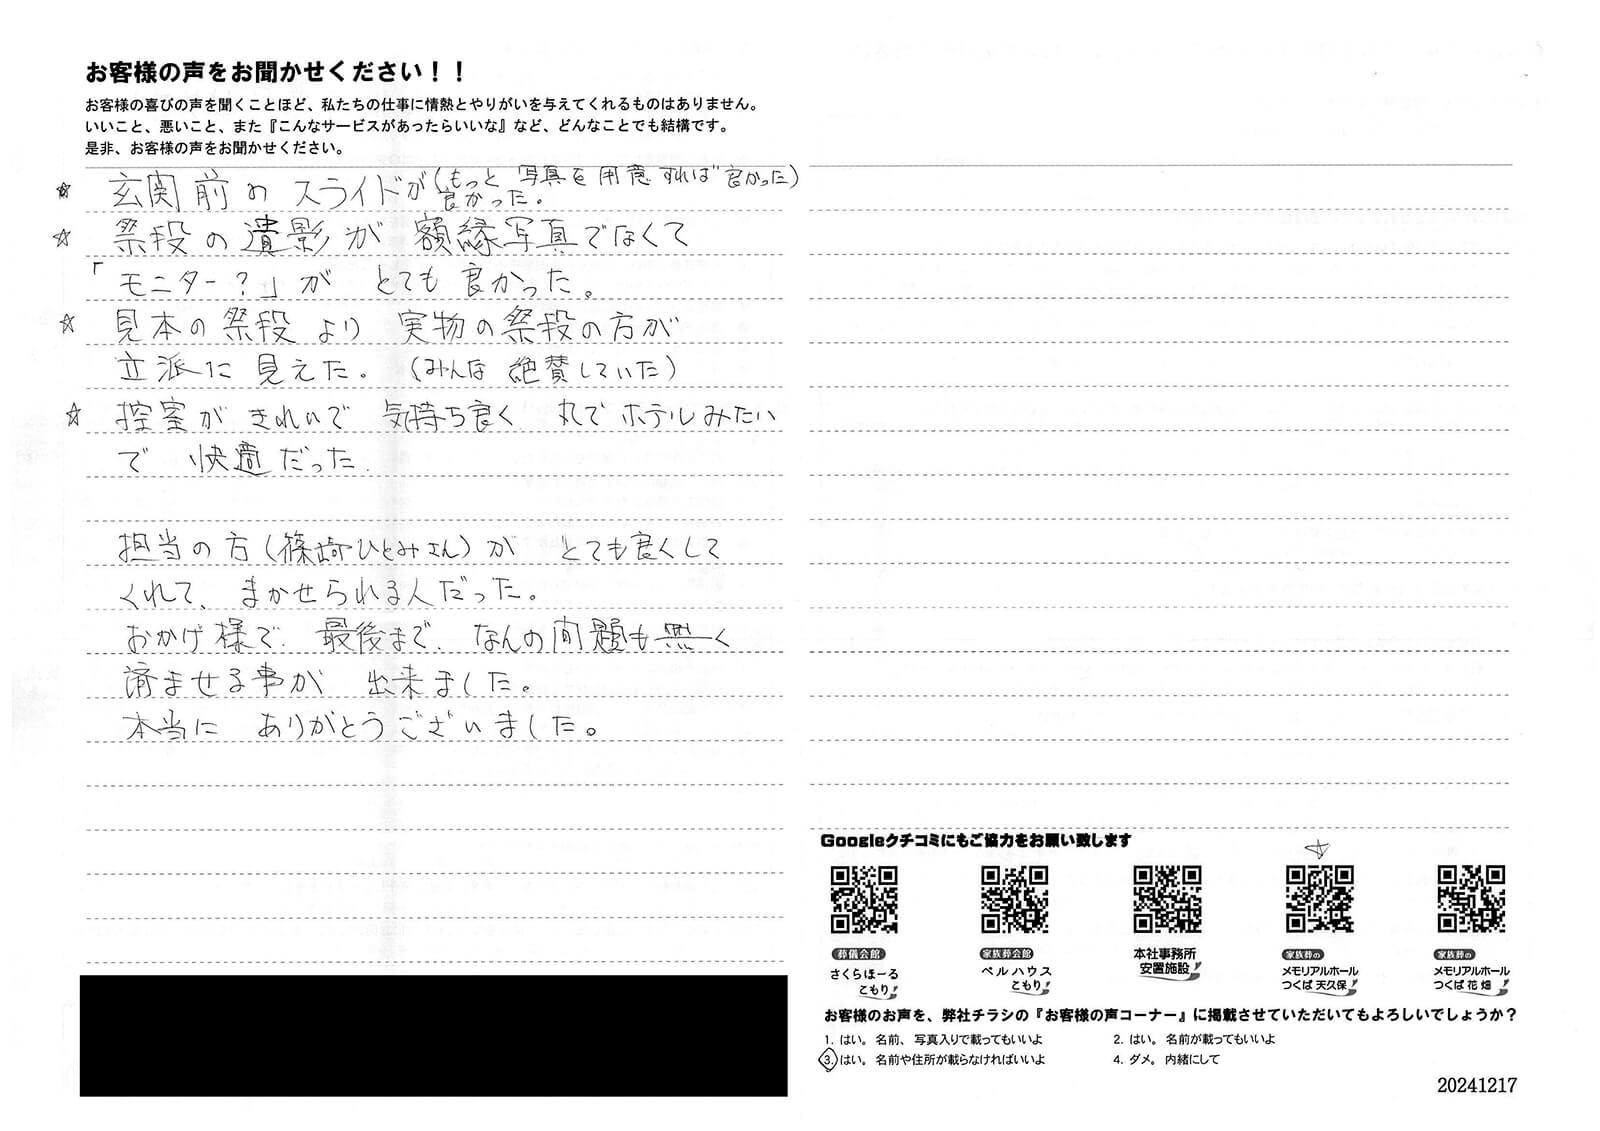 お客様の声をお聞かせください！！
お客様の喜びの声を聞くことほど、私たちの仕事に情熱とやりがいを与えてくれるものはありません。
いいこと、悪いこと、また『こんなサービスがあったらいいな』など、どんなことでも結構です。
是非、お客様の声をお聞かせください。
☆ 玄関前の スライドが 良かった。(もっと 写真を 用意すれば 良かった)
☆ 祭段の遺影が 額縁写真でなくて
「モニター？」が とても 良かった。
☆ 見本の祭段より 実物の祭段の方が
立派に 見えた。(みんな 絶賛していた)
☆ 控室が きれいで 気持ち良く、丸で ホテルみたい
で 快適だった。
担当の方(篠崎ひとみさん)が とても良くして
くれて、まかせられる人だった。
おかげ様で、最後まで、なんの問題も無く
済ませる事が 出来ました。
本当に ありがとうございました。
Googleクチコミにもご協力をお願い致します
☆
葬儀会館 さくらほーる こもり
家族葬会館 ベルハウス こもり
本社事務所 安置施設
家族葬の メモリアルホール つくば 天久保
家族葬の メモリアルホール つくば 花畑
お客様のお声を、弊社チラシの『お客様の声コーナー』に掲載させていただいてもよろしいでしょうか？
1. はい。名前、写真入りで載ってもいいよ 2. はい。名前が載ってもいいよ
3. はい。名前や住所が載らなければいいよ 4. ダメ。内緒にして
20241217